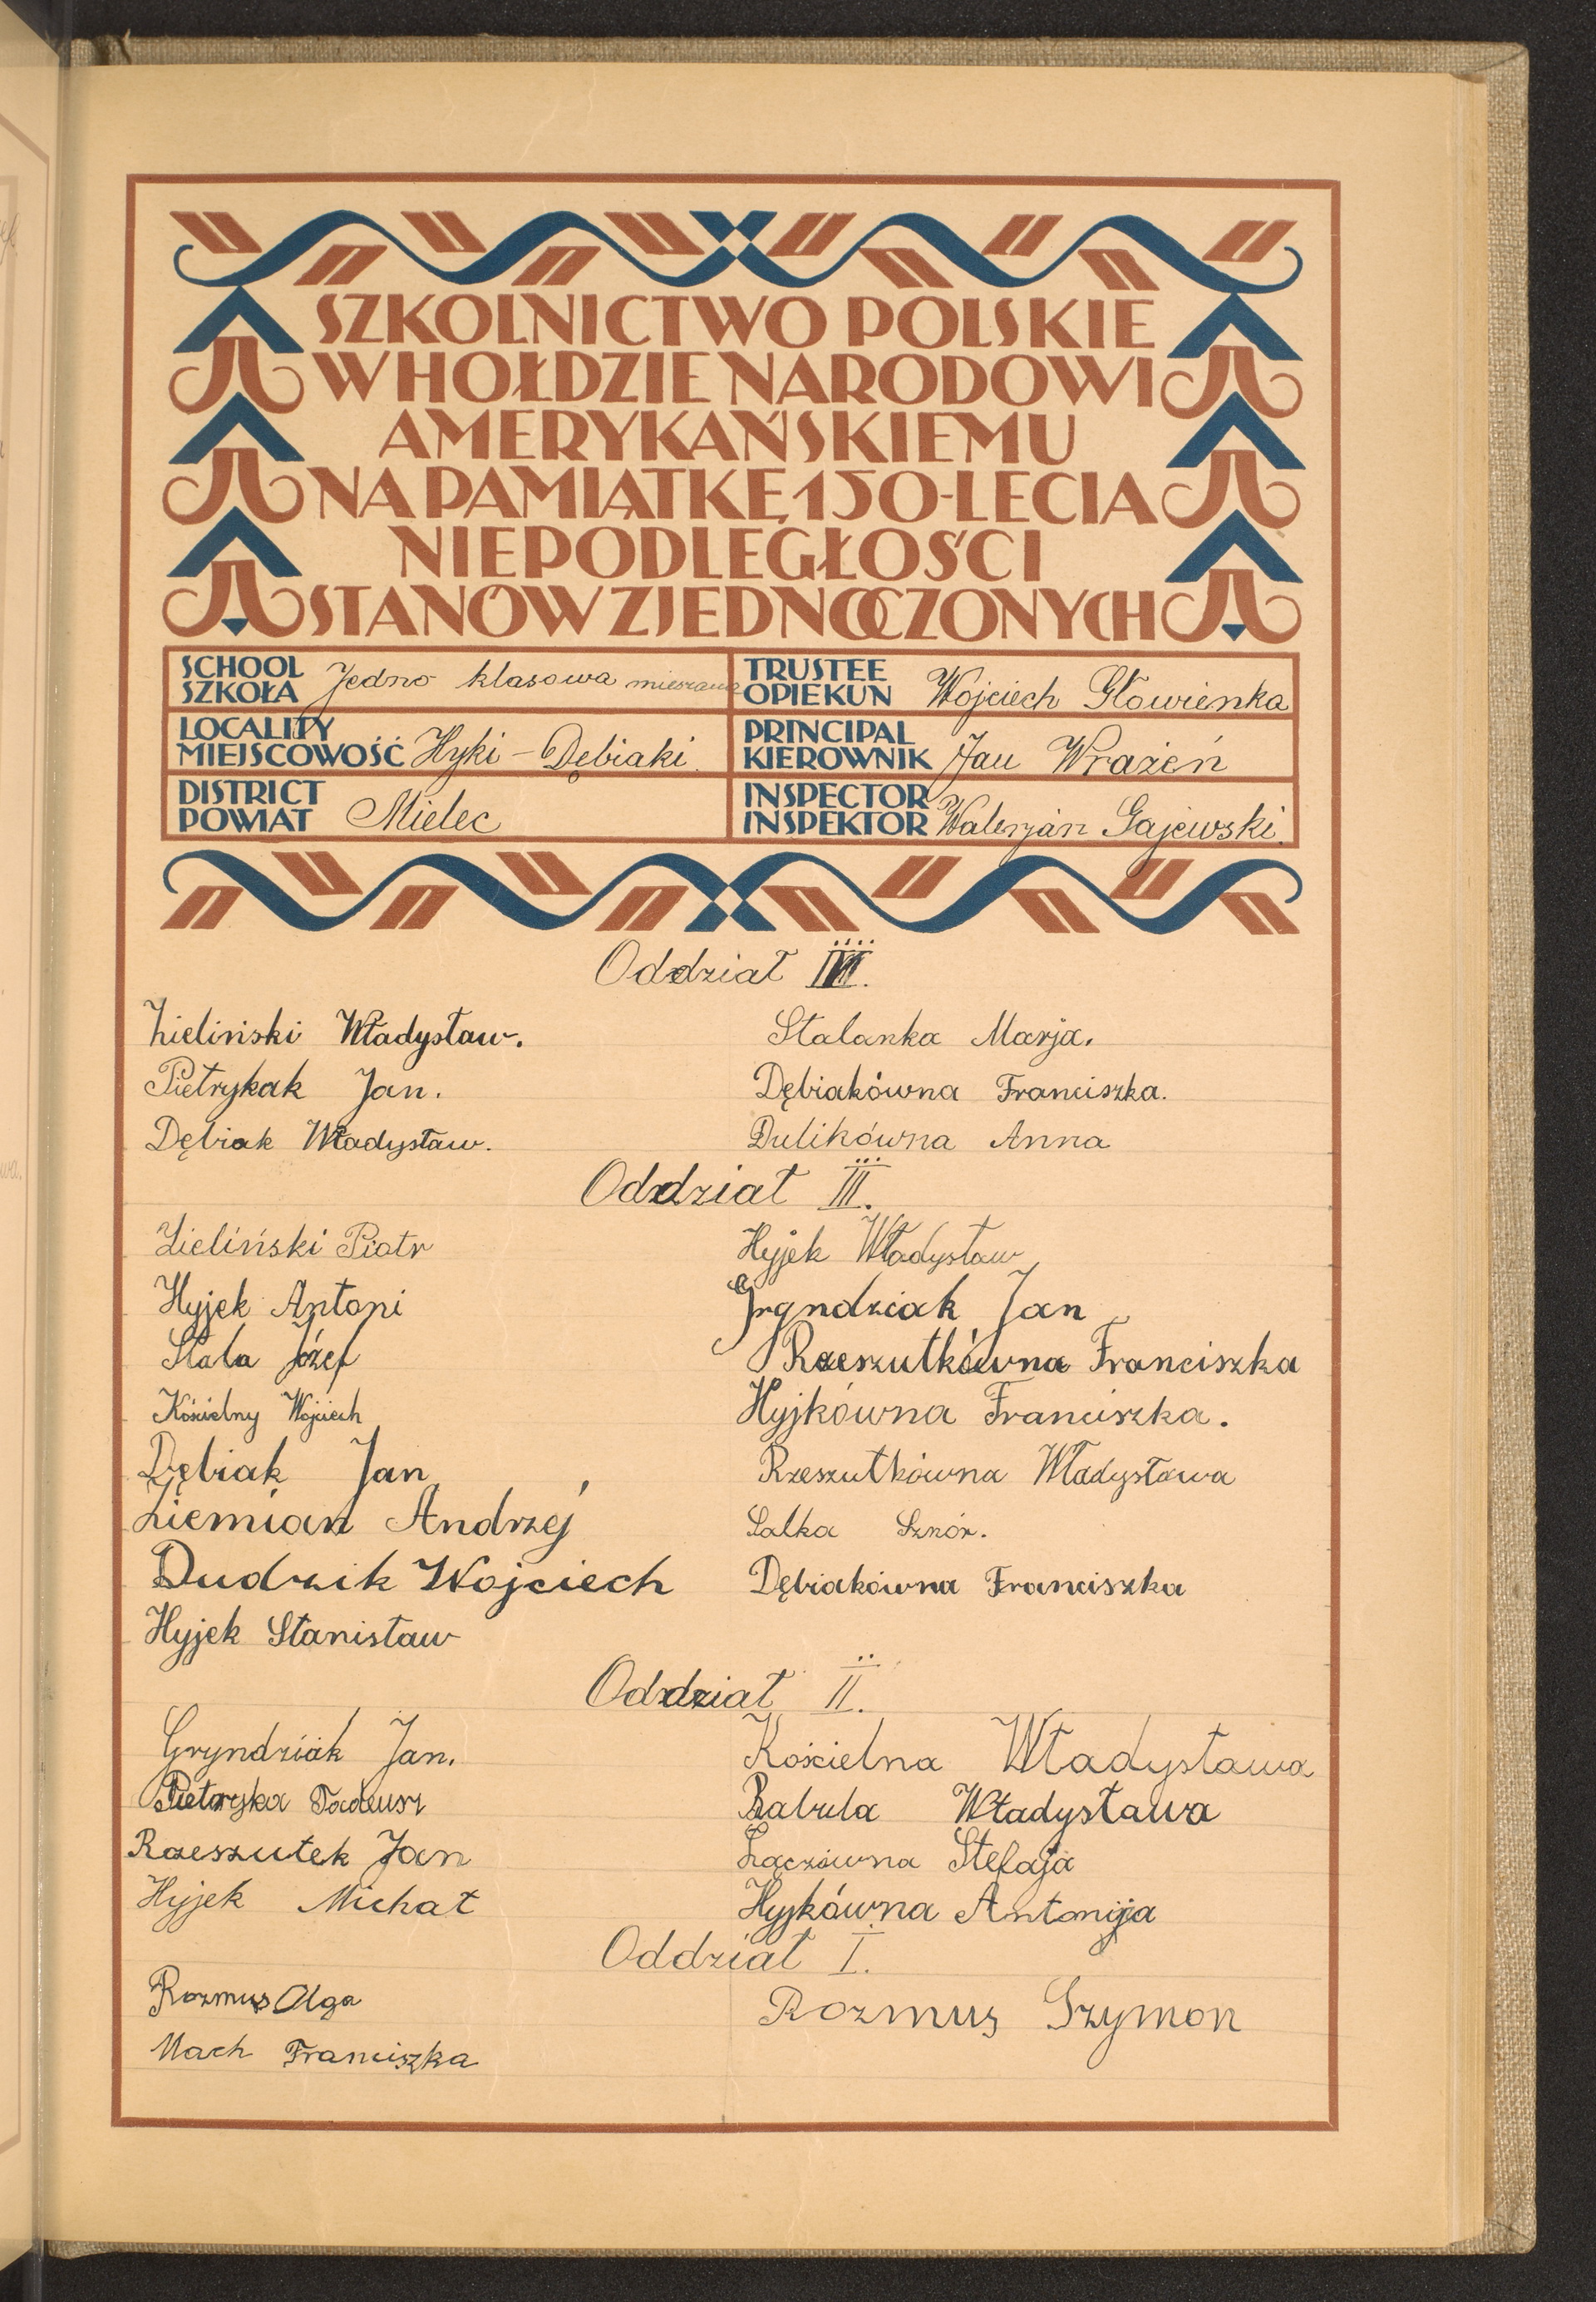 SZKOLNICTWO POLSKIE
W HOŁDZIE NARODOWI
AMERYKAŃSKIEMU
NA PAMIĄTKĘ 150-LECIA
NIEPODLEGŁOŚCI
STANÓW ZJEDNOCZONYCH
SCHOOL
SZKOŁA Jedno klasowa mieszana
TRUSTEE
OPIEKUN Wojciech Głowienka
LOCALITY
MIEJSCOWOŚĆ Hyki - Dębiaki.
PRINCIPAL
KIEROWNIK Jan Wrażeń
DISTRICT
POWIAT Mielec
INSPECTOR
INSPEKTOR Walerjan Gajewski.
Oddział
Zieliński Władysław.
Stalanka Marja.
Pietrykak Jan.
Dębiakówna Franciszka.
Dębiak Władysław.
Dulikówna Anna
Oddział III.
Zieliński Piotr
Hyjek Władysław
Hyjek Antoni
Gryndziak Jan
Stala Józef
Rzeszutkówna Franciszka
Kościelny Wojciech
Hyjkówna Franciszka.
Dębiak Jan
Rzeszutkówna Władysława
Ziemian Andrzej
Salka
Dudzik Wojciech
Dębiakówna Franciszka
Hyjek Stanisław
Oddział II.
Gryndziak Jan.
Kościelna Władysława
Pietryka Tadeusz
Babula Władysława
Rzeszutek Jan
Łączówna Stefaja
Hyjek Michał
Hyjkówna Antonija
Oddział I.
Rozmus Olga
Rozmus Szymon
Mach Franciszka